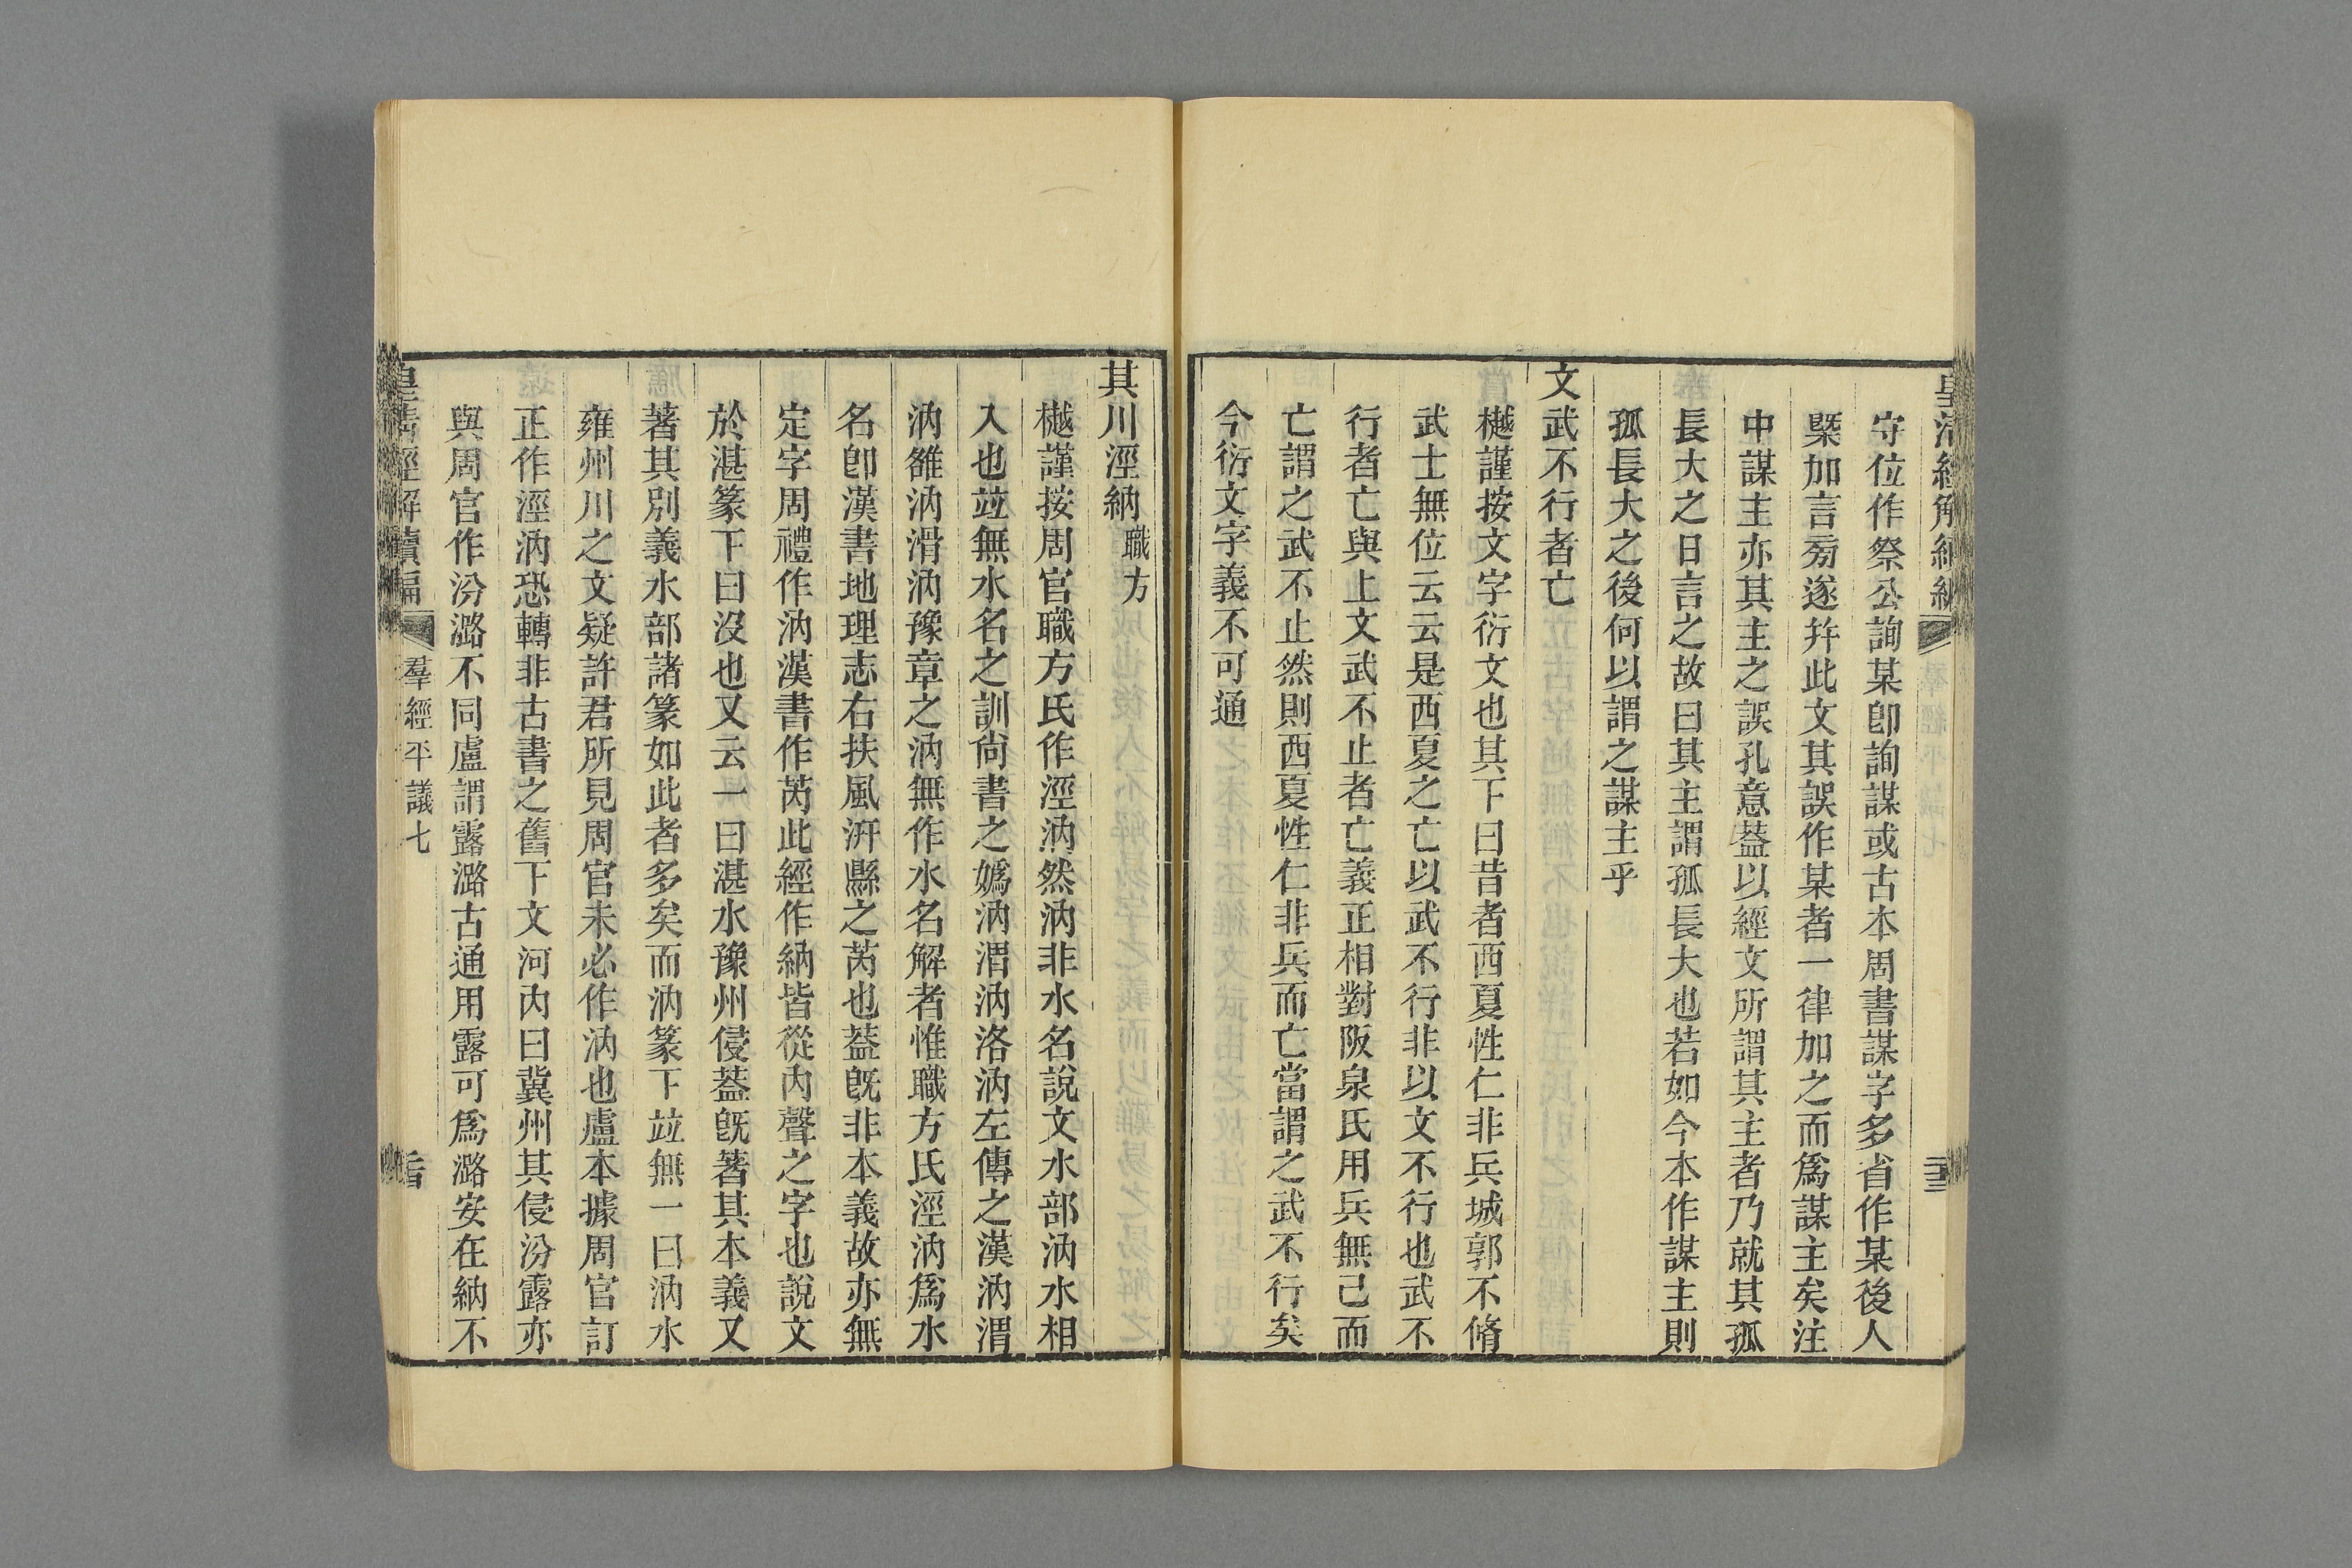 守位作祭公詢某卽詢謀或古本周書謀字多省作某後人
槩加言旁遂幷此文其誤作某者一律加之而爲謀主矣注
中謀主亦其主之誤孔意葢以經文所謂其主者乃就其孤
長大之日言之故曰其主謂孤長大也若如今本作謀主則
孤長大之後何以謂之謀主乎
文武不行者亡
樾謹按文字衍文也其下曰昔者西夏性仁非兵城郭不脩
武士無位云云是西夏之亡以武不行非以文不行也武不
行者亡與上文武不止者亡義正相對阪泉氏用兵無己而
亡謂之武不止然則西夏性仁非兵而亡當謂之武不行矣
今衍文字義不可通
其川涇納職方
樾謹按周官職方氏作涇汭然汭非水名說文水部汭水相
入也竝無水名之訓尙書之嬀汭渭汭洛汭左傳之漢汭渭
汭雒汭滑汭豫章之汭無作水名解者惟職方氏涇汭爲水
名卽漢書地理志右扶風汧縣之芮也葢旣非本義故亦無
定字周禮作汭漢書作芮此經作納皆從內聲之字也說文
於湛篆下曰沒也又云一曰湛水豫州侵葢旣著其本義又
著其別義水部諸篆如此者多矣而汭篆下竝無一曰汭水
雍州川之文疑許君所見周官未必作汭也盧本據周官訂
正作涇汭恐轉非古書之舊下文河內曰冀州其侵汾露亦
與周官作汾潞不同盧謂露潞古通用露可爲潞安在納不
皇淸經解續編
羣經平議七